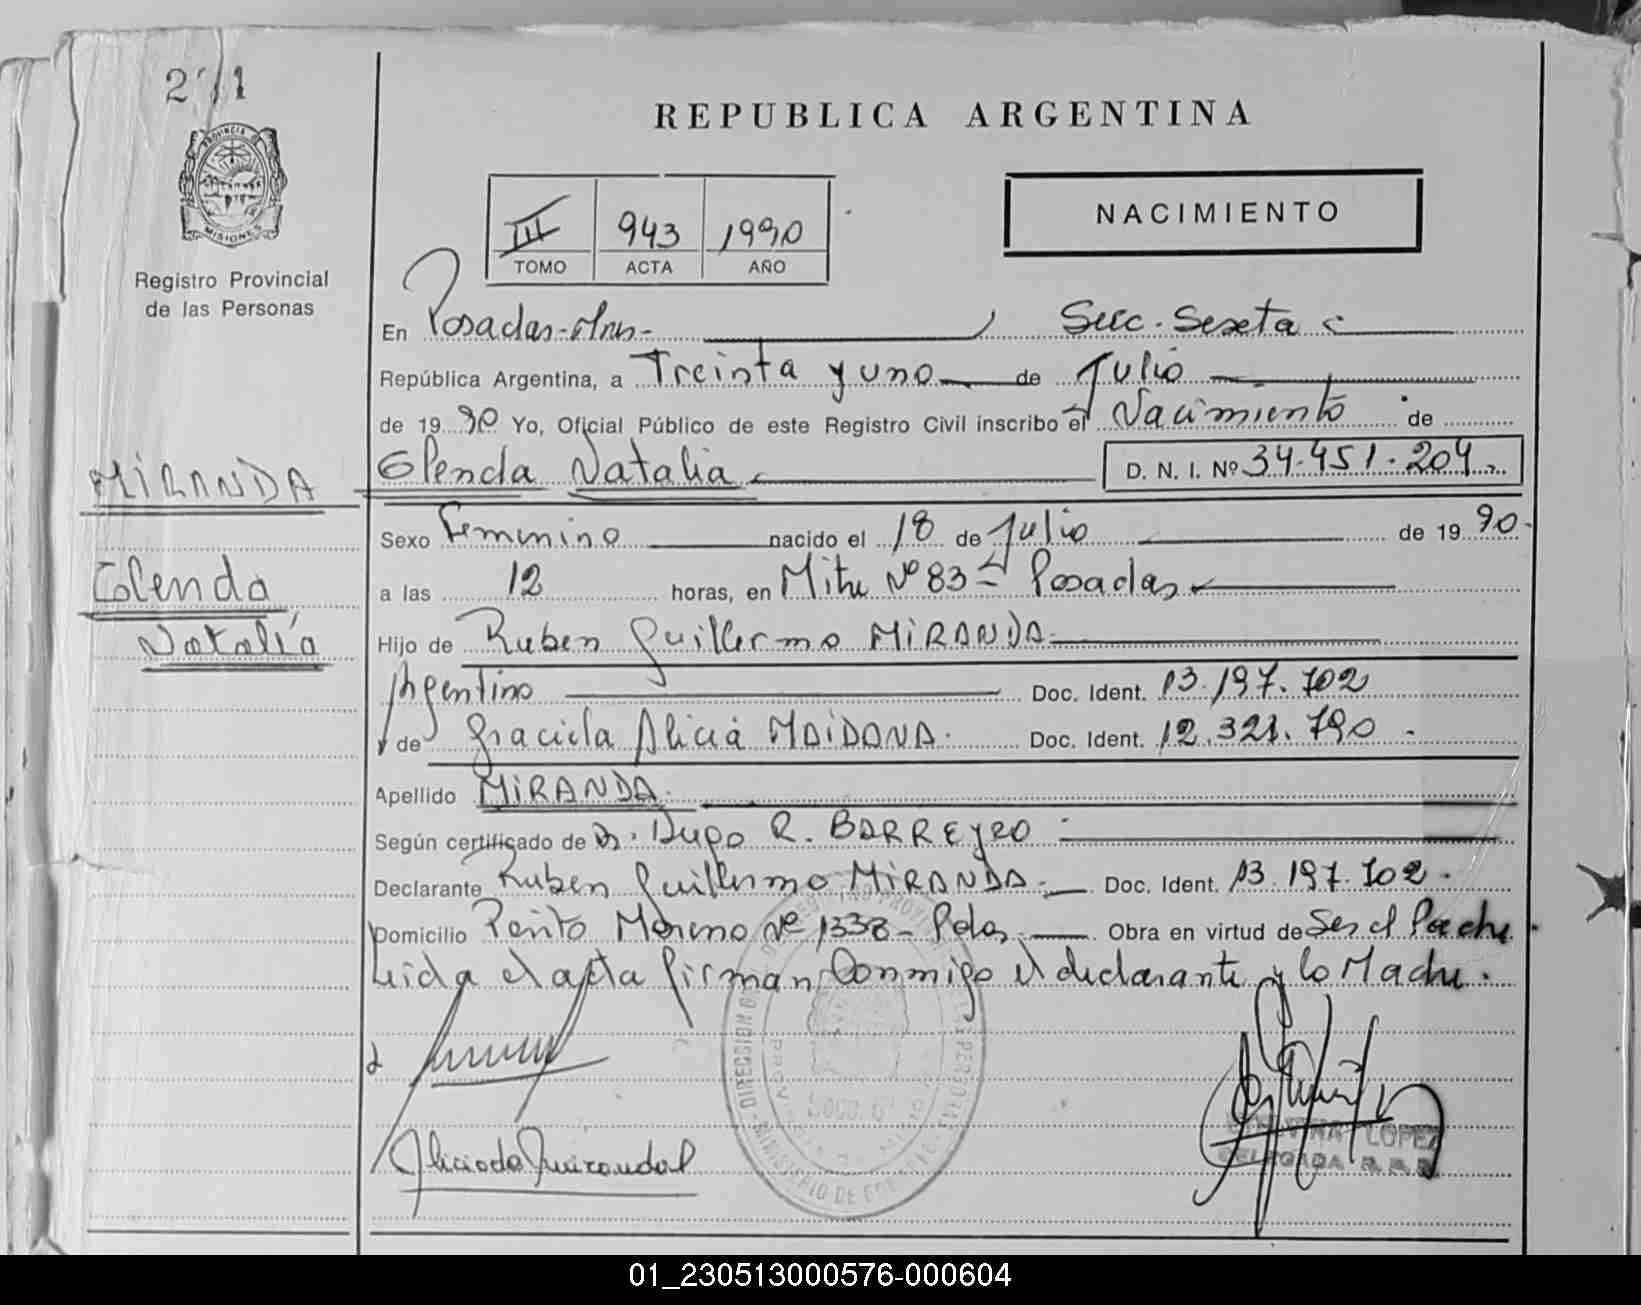 271
REPUBLICA ARGENTINA
PROVINCIA DE
MISIONES
Registro Provincial
de las Personas
III 943 1990
TOMO ACTA AÑO
NACIMIENTO
En Posadas-Mnes- Secc. Sexta
República Argentina, a Treinta y uno de Julio
de 1990 Yo, Oficial Público de este Registro Civil inscribo el Nacimiento de
MIRANDA
Glenda Natalia D. N. I. Nº 34.451.204
Sexo Femenino nacido el 18 de Julio de 1990.
Glenda
a las 12 horas, en Mitre Nº 83 - Posadas
Natalia
Hijo de Ruben Guillermo MIRANDA
Argentino Doc. Ident. 13.197.702
y de Graciela Alicia MAIDANA. Doc. Ident. 12.321.790.
Apellido MIRANDA.
Según certificado de Dr. Hugo R. BARREYRO
Declarante Ruben Guillermo MIRANDA. Doc. Ident. 13.197.702.
Domicilio Perito Moreno Nº 1338 - Pdas. Obra en virtud de Ser el Padre
Leida el acta firman Conmigo el declarante y la Madre.
DIRECCION
MINISTERIO DE
LOPEZ
DELEGADA
01_230513000576-000604